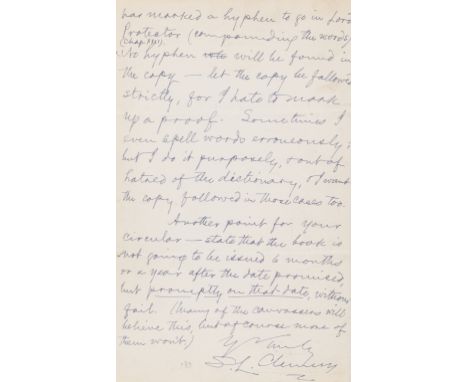 has marked a hyphen to go in Lord
Protector (compounding the words)
(Chap. XVI).
No hyphen will be found in
the copy — let the copy be followed
strictly, for I hate to mark
up a proof. Sometimes I
even spell words erroneously;
but I do it purposely, & out of
hatred of the dictionary, & I want
the copy followed in those cases too.
Another point for your
circular — state that the book is
not going to be issued 6 months
or a year after the date promised,
but promptly on that date, without
fail. (Many of the canvassers will
believe this, but of course more of
them won't)
Ys Truly
S. L. Clemens